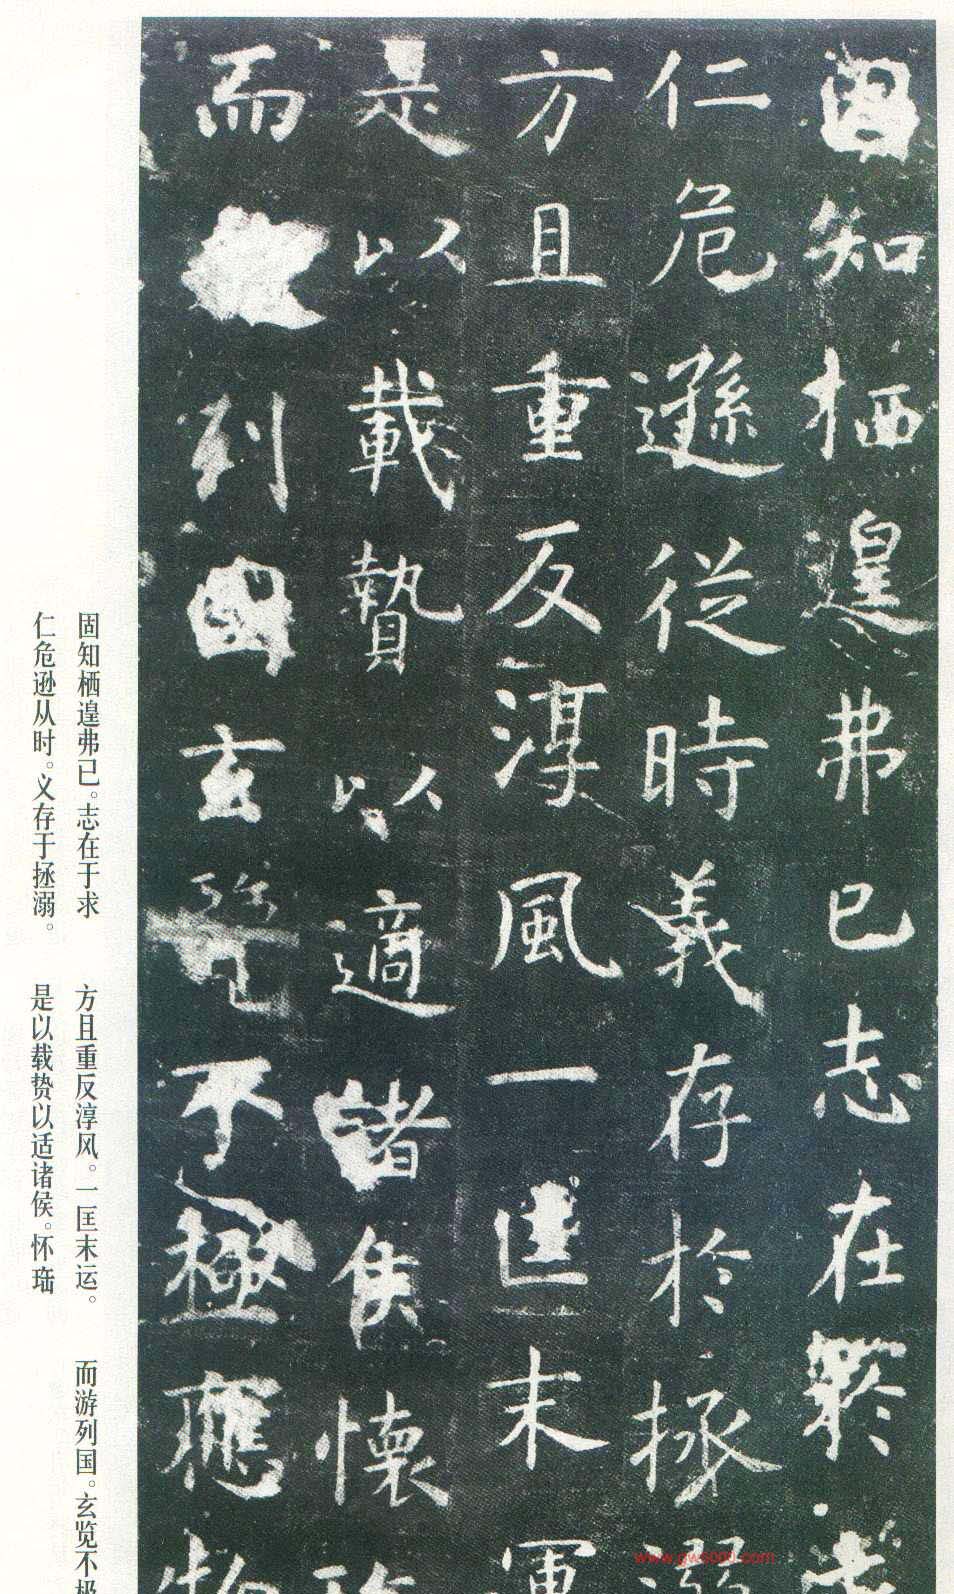 固知栖遑弗已志在於
仁危遜従時義存於拯溺
方且重反淳風一匡末運
是以載贄以適諸侯懷
而列國玄覽不極應物
固知栖遑弗已。志在于求
仁危逊从时。义存于拯溺。
方且重反淳风。一匡末运。
是以载贽以适诸侯。怀瑙
而游列国。玄览不极
www.gw5000.com